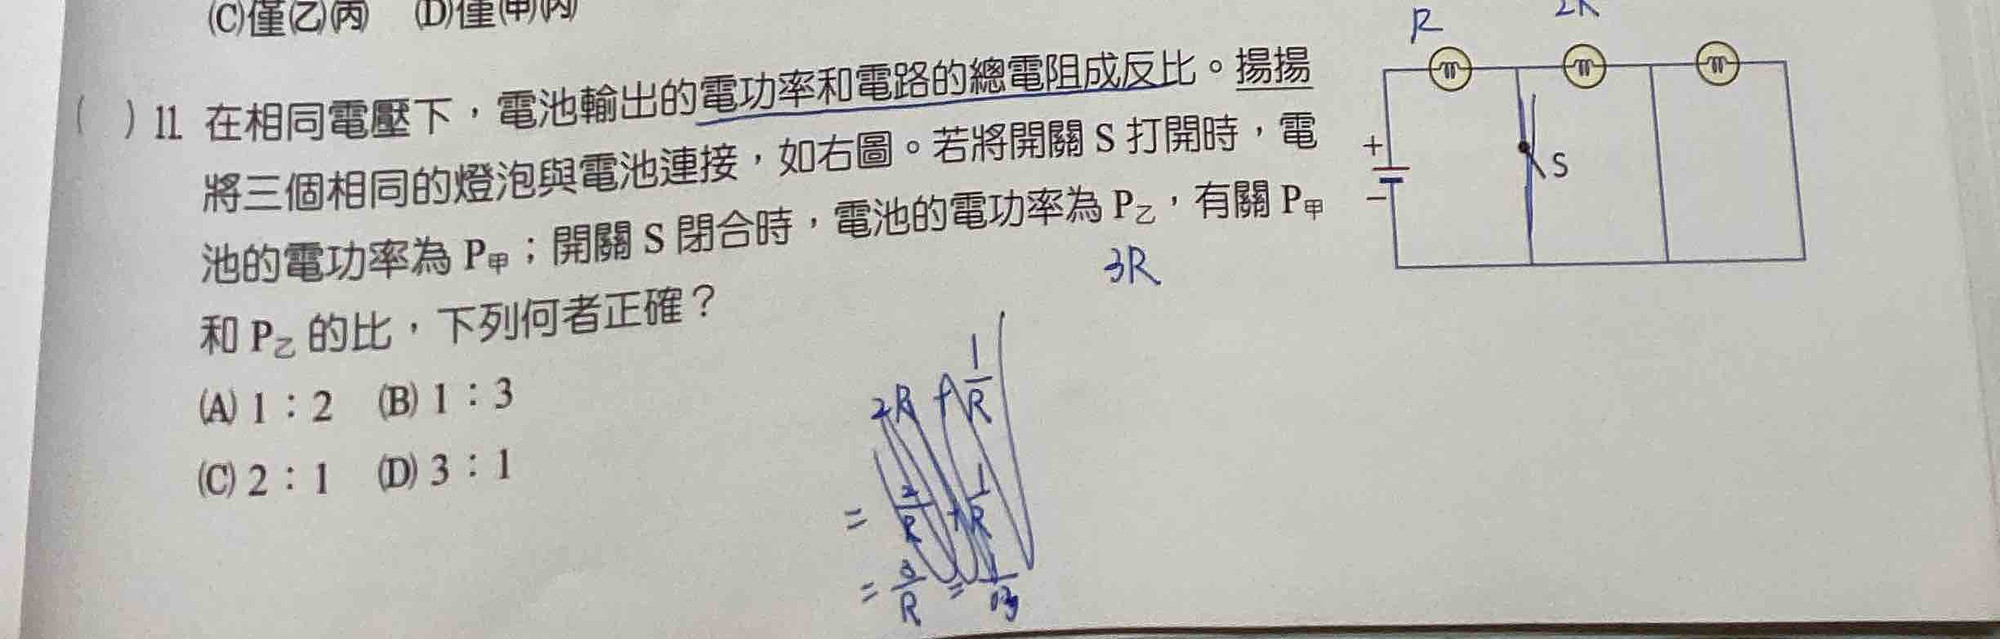 (C)僅(乙)(丙) (D)僅(甲)(丙)
( )11 在相同電壓下，電池輸出的電功率和電路的總電阻成反比。揚揚
將三個相同的燈泡與電池連接，如右圖。若將開關 S 打開時，電
池的電功率為 P甲；開關 S 閉合時，電池的電功率為 P乙，有關 P甲
和 P乙 的比，下列何者正確？
(A) 1：2 (B) 1：3
(C) 2：1 (D) 3：1
R
2R
+
−
S
3R
2R + 1/R
= 2/R + 1/R
= 3/R =